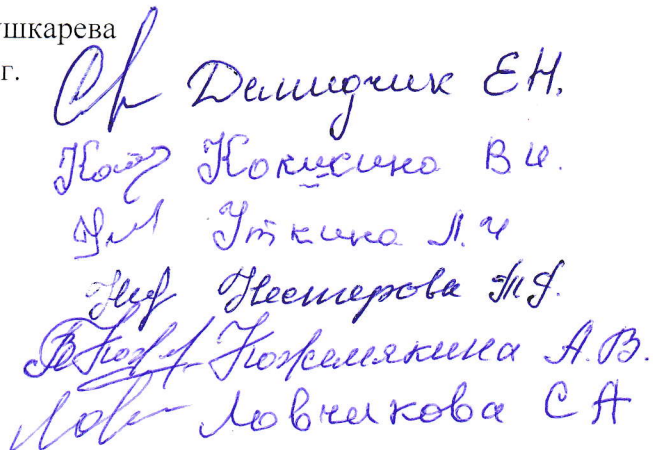 ушкарева
г.
Демидчик Е.Н.
Кокшина В И.
Уткина Л. И
Нестерова Т.Г.
Кожемякина А.В.
Ловчикова С А